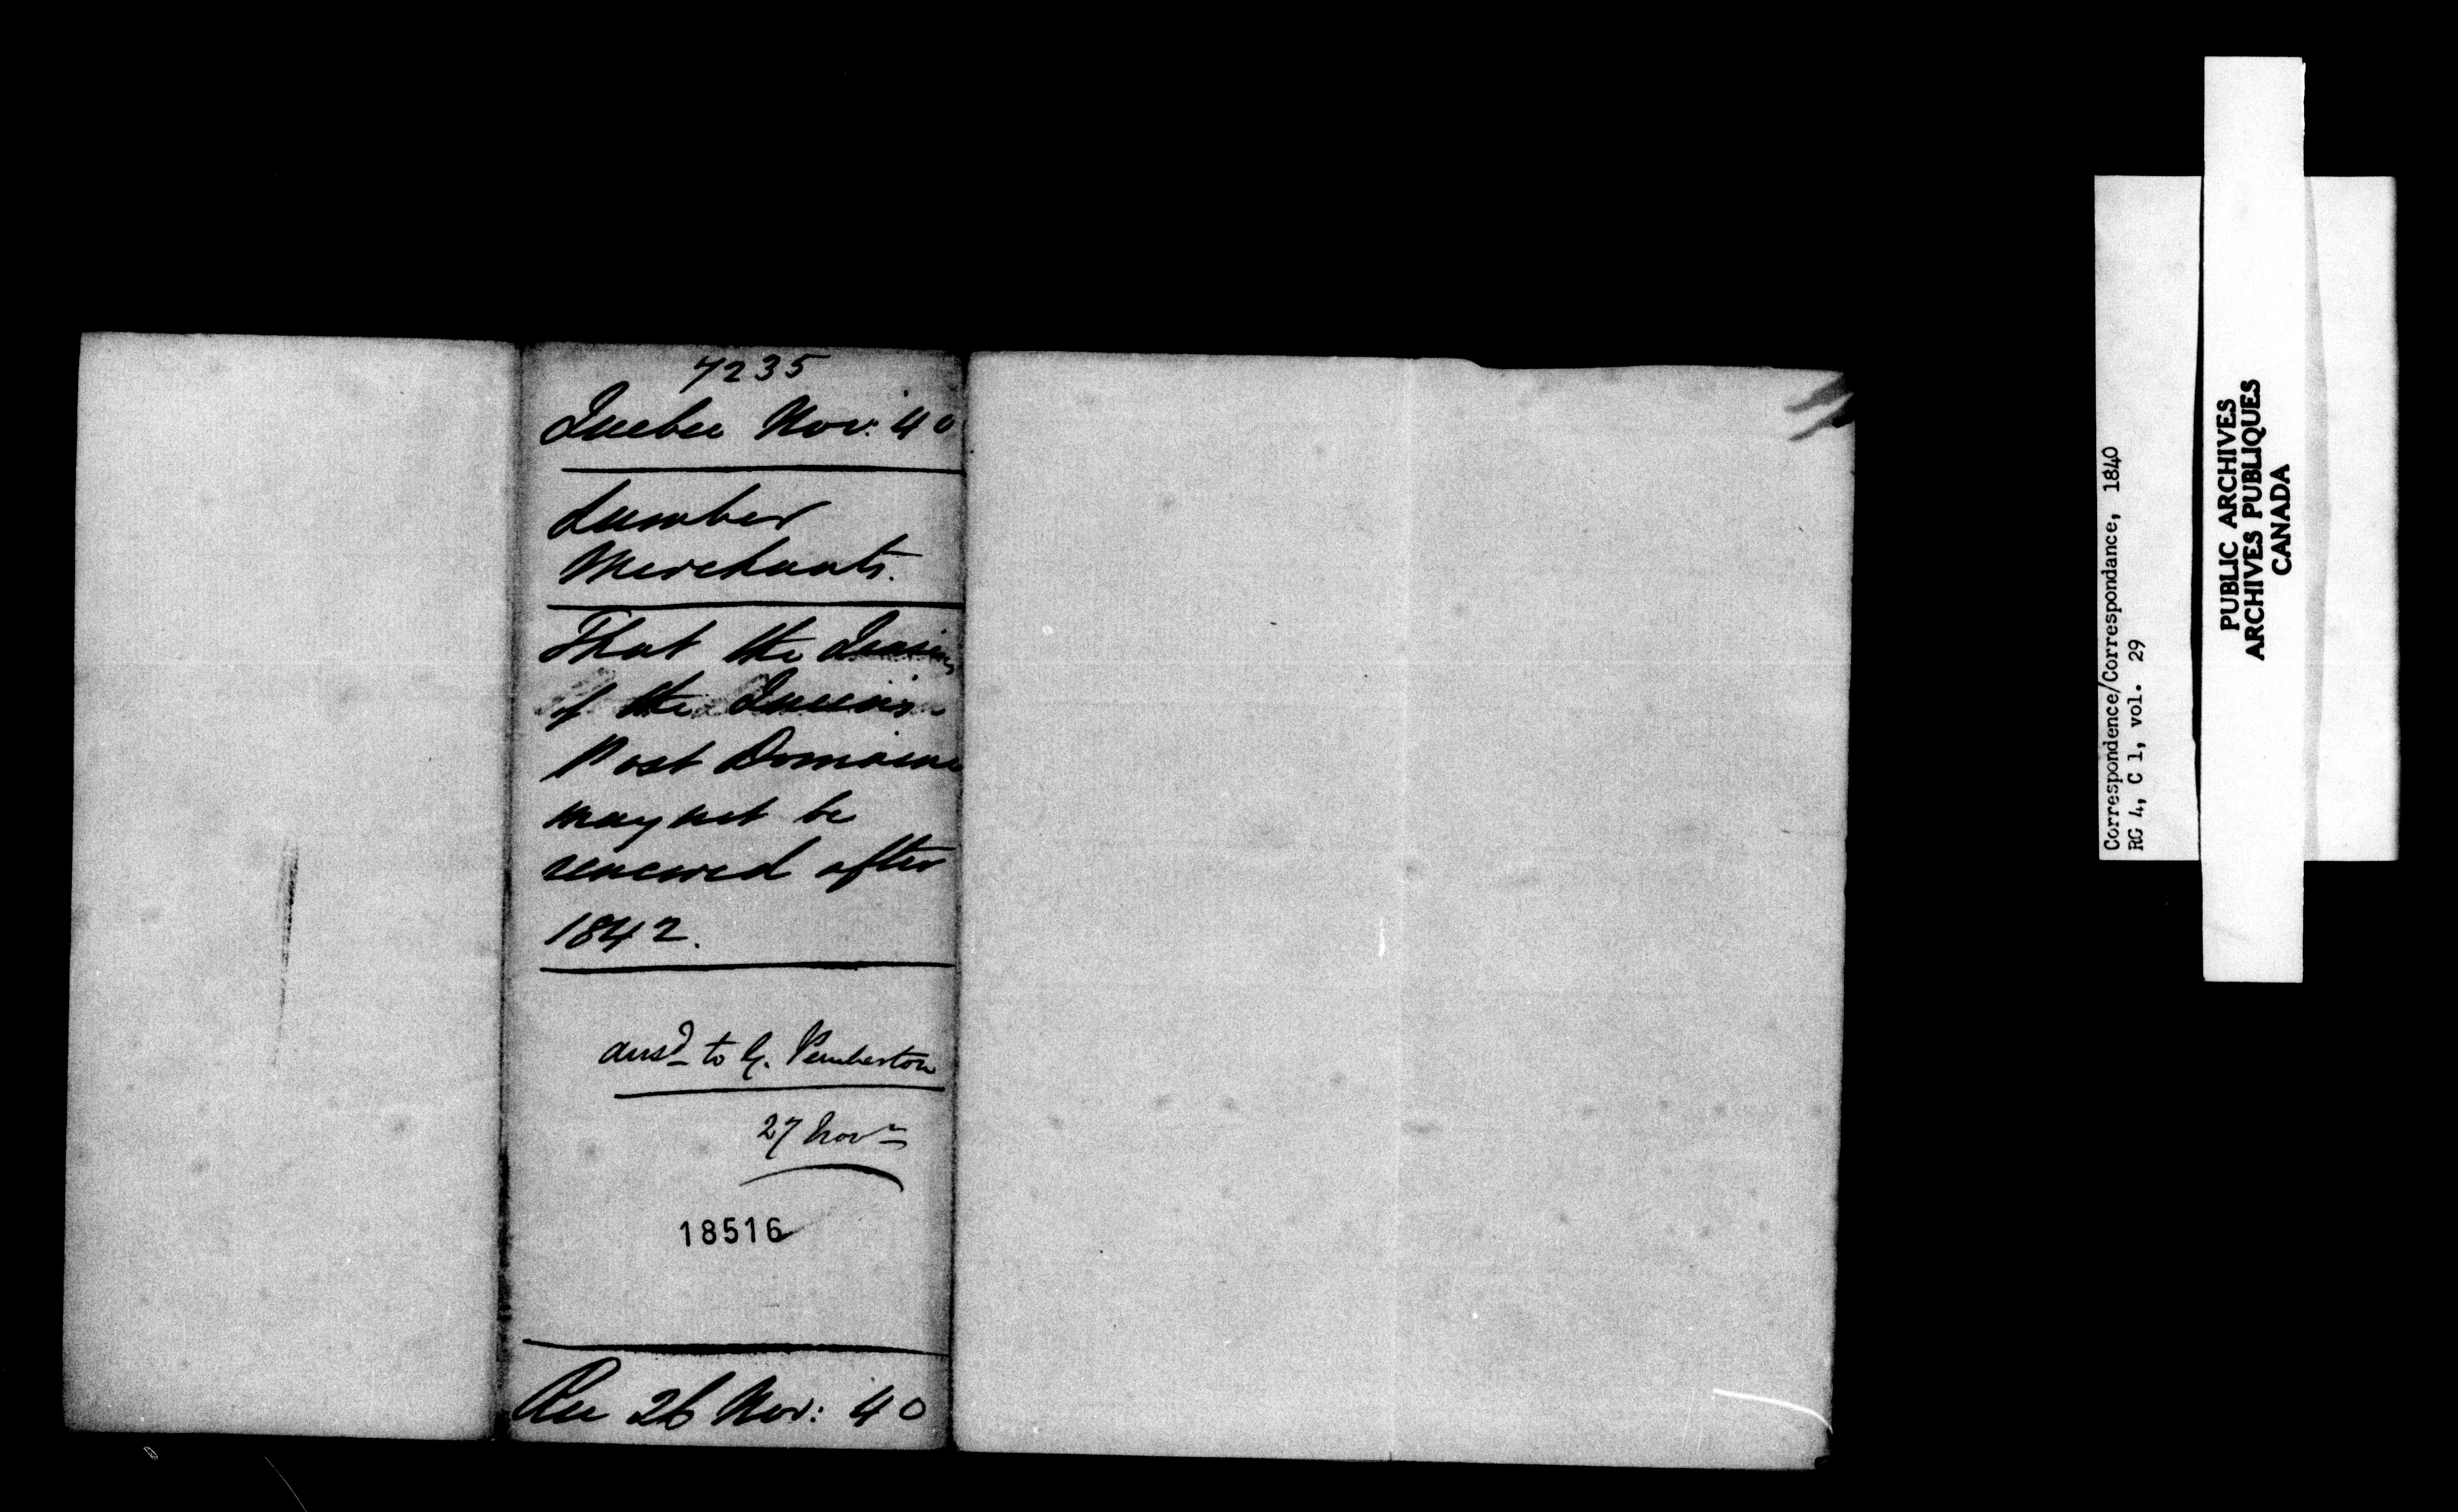 7235
Quebec Nov: 40
Lumber
Merchants.
That the Leasing
of the Queen's
Post Domaine
may not be
renewed after
1842.
ansd to G. Pemberton
27 Novr
18516
Rec 26 Nov: 40
Correspondence/Correspondance, 1840
RG 4, C 1, vol. 29
PUBLIC ARCHIVES
ARCHIVES PUBLIQUES
CANADA